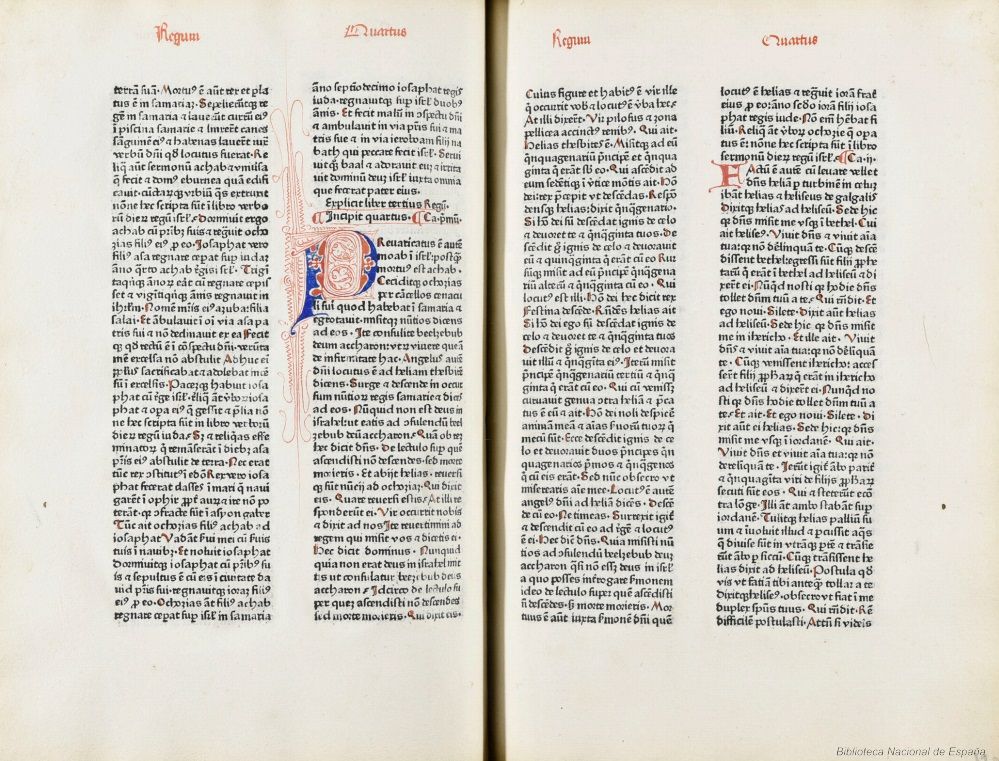 Regum
III Quartus
terrā suā. Mortuꝰ ē aūt rex et pla
tus ē in samariaꝫ. Sepelieruntqꝫ re
gē in samaria ⁊ lauerūt currū eiꝰ
ī piscina samarie ⁊ linxerūt canes
sāguinē eiꝰ ⁊ habenas lauerūt iux
verbū dn̄i qd̄ locutus fuerat. Re
liq̄ aūt sermonū achab ⁊ vniūsa
q̄ fecit ⁊ domꝰ eburnea quā edifi
cauit. cūctarūqꝫ vrbiū q̄s extruxit
nōne hec scripta sūt ī libro verbo
rū dierꝫ regū isrl̄. Dormiuit ergo
achab cū pr̄ibꝰ suis ⁊ regūit ocho
zias filiꝰ eiꝰ ꝓ eo. Iosaphat vero
filiꝰ asa regnare cepat suꝑ iudaꝫ
āno q̄rto achab regis isrl̄. Trigīta
taqnqꝫ anorꝫ erāt cū regnare cepis
set ⁊ vigītiqnqꝫ ānis regnauit in
ihrl̄m. Nomē mr̄is eiꝰ azuba. filia
salai. Et ābulauit ī oī via asa pa
tris sui ⁊ nō declinauit ex ea Fecit
qꝫ qd̄ rectū ē ī cōspectu dn̄i. verūta
mē excelsa nō abstulit Adhuc eī
ppl̄us sacrificabat ⁊ adolebat īcē
sū ī excelsis. Pacemqꝫ habuit iosa
phat cū rege isrl̄. Reliq̄ aūt v̄borꝫ iosa
phat ⁊ opa eiꝰ q̄ gessit ⁊ prelia nō
ne hec scripta sūt in libro verborū
dierꝫ regū iuda. Sꝫ ⁊ reliqas effe
minatorꝫ q̄ remāserāt ī diebꝫ asa
pr̄is eiꝰ abstulit de terra. Nec erat
tūc rex ɔstitutꝰ ī edō Rex vero iosa
phat fecerat classes ī mari q̄ naui
garēt ī ophir ꝓpt̄ aurꝫ ⁊ ire nō po
terāt. qꝫ ɔfracte sūt ī asyon gaber
Tūc ait ochozias filiꝰ achab ad
iosaphat Vadāt ẜui mei cū ẜuis
tuis ī nauibꝫ. Et noluit iosaphat
Dormiuitqꝫ iosaphat cū pr̄ibꝰ su
is ⁊ sepultus ē cū eis ī ciuitate da
uid pr̄is sui. regnauitqꝫ iorā filiꝰ
eiꝰ ꝓ eo. Ochozias aūt filiꝰ achab
regnare cepat suꝑ isrl̄ in samaria
āno septīo decimo iosaphat regis
iuda. regnauitqꝫ suꝑ isrl̄ duobꝫ
ānis. Et fecit malū in ɔspectu dn̄i
⁊ ambulauit in via pr̄is sui ⁊ ma
tris sue ⁊ in via ieroboam filij na
bath qui peccare fecit isrl̄. Serui
uitqꝫ baal ⁊ adorauit eū ⁊ irrita
uit dominū deuꝫ isrl̄. iuxta omnia
que fecerat pater eius.
Explicit liber tertius Regū.
Incipit quartus. Ca. pmū.
PReuaricatus ē aūtē
moab ī isrl̄. postqꝫ
mortuꝰ est achab.
Ceciditqꝫ ochozias
per cācellos cenacu
li sui quod habebat ī samaria ⁊
egrotauit. misitqꝫ nūtios dicens
ad eos. Ite consulite beelzebub
deum accharon. vtꝝ viuere queā
de īfirmitate hac. Angelus autē
dn̄i locutus ē ad heliam thesbitē
dicens. Surge ⁊ descende in occur
sum nūtiorꝫ regis samarie ⁊ dices
ad eos. Nūquid non est deus in
israhel. ut eatis ad ɔsulendū beel
zebub deū accharon. Quā ob reꝫ
hec dicit dn̄s. De lectulo suꝑ quē
ascendisti nō descendes. sed morte
morieris. Et abijt helias. reuersi
qꝫ sūt nūcij ad ochoziaꝫ. Qui dicit
eis. Quare reuersi estis. At illi re
sponderunt ei. Vir occurrit nobis
⁊ dixit ad nos Ite reuertimini ad
regem qui misit vos ⁊ dicetis ei.
Hec dicit dominus. Nunquid
quia non erat deus in israhel mit
tis ut consulatur beelzebub deus
accharon. Idcirco de lectulo su
per quē ascendisti nō descendes
sed morte morieris. Qui dixit eis.
Regum
Quartus
Cuius figure et habitꝰ ē vir ille
q̄ occurrit vob̄ ⁊ locutꝰ ē v̄ba hec.
At illi dixerūt. Vir pilosus ⁊ zona
pellicea accinctꝰ renibꝰ. Qui ait.
Helias thesbites ē. Misitqꝫ ad eū
qnquagenariū pncipē et qnqua
ginta q̄ erāt sb̄ eo. Qui ascēdit ab
eum sedētiqꝫ ī vtice mōtis ait. Hō
dei. rex pcepit vt descēdas. Respō
densqꝫ helias. dixit qnqgenario.
Si hō dei sū descēdat ignis de celo
⁊ deuoret te ⁊ qnqginta tuos. De
scēdit gͦ ignis de celo ⁊ deuorauit
eū ⁊ qunqginta q̄ erāt cū eo Rur
sūqꝫ misit ad eū pncipē qnqgena
riū alterū ⁊ qnqginta cū eo. Qui
locutꝰ est illi. Hō dei hec dicit rex
Festina descēde. Rn̄dēs helias ait
Si hō dei ego sū descēdat ignis de
celo ⁊ deuoret te ⁊ qnqginta tuos
Descēdit gͦ ignis de celo et deuora
uit illū ⁊ qnqgita eiꝰ. Iterū misit
pncipē qnqgenariū tertiū ⁊ qnq
ginta q̄ erāt cū eo. Qui cū venissꝫ
curuauit genua ɔtra heliā ⁊ pca
tus ē eū ⁊ ait. Hō dei noli despicē
animā meā ⁊ aīas ẜuoꝝ tuoꝝ q̄
mecū sūt. Ecce descēdit ignis de ce
lo et deuorauit duos pncipes qn
quagenarios pmos ⁊ qnqgenos
q̄ cū eis erāt. Sed nūc obsecro vt
miserearis aīe mee. Locutꝰ ē autē
angelꝰ dn̄i ad heliā dicēs. Descē
de cū eo. Ne timeas. Surrexit igit̄
⁊ descendit cū eo ad regē ⁊ locutꝰ
ē ei. Hec dīt dn̄s. Quia misisti nū
tios ad ɔsulendū beelzebub deuꝫ
accharon qͣsi nō essꝫ deus in isrl̄
a quo posses īterrogare ẜmonem
ideo de lectulo suꝑ quē ascēdisti
nō descēdes. sꝫ morte morieris. Mor
tuus ē aūt iuxta ẜmonē dn̄i quē
locutꝰ ē helias ⁊ regūit iorā frat̄
eius ꝓ eo. āno scdo iorā filij iosa
phat regis iude. Nō em̄ hēbat fi
liū. Reliq̄ aūt v̄borꝫ ochozie q̄ opa
tus ē. nōne hec scripta sūt ī libro
sermonū dierꝫ regū isrl̄. Ca. ij.
FActū ē autē cū leuare vellet
dn̄s heliā ꝑ turbinē in celuꝫ
ibāt helias ⁊ heliseus de galgalis
Dixitqꝫ helias ad heliseū. Sede hic
qꝫ dn̄s misit me vsqꝫ ī bethel. Cui
ait heliseꝰ. Viuit dn̄s ⁊ viuit aīa
tua. qꝫ nō derelinquā te. Cūqꝫ descē
dissent bethel. egressi sūt filij ꝓphe
taꝝ q̄ erāt ī bethel ad heliseū ⁊ di
xerūt ei. Nūqd̄ nosti qꝫ hodie dn̄s
tollet dn̄m tuū a te. Qui rn̄dit. Et
ego noui. Silete. Dixit aūt helias
ad heliseū. Sede hic qꝫ dn̄s misit
me in ihericho. Et ille ait. Viuit
dn̄s ⁊ viuit aīa tua. qꝫ nō derelinquā
te. Cūqꝫ venissent ihericho. acces
serūt filij ꝓphaꝝ q̄ erāt in ihericho
ad heliseū ⁊ dixerūt ei. Nunqd no
sti qꝫ dn̄s hodie tollet dn̄m tuū a
te. Et ait. Et ego noui. Silete. Di
xit aūt ei helias. Sede hic. qꝫ dn̄s
misit me vsqꝫ ī iordanē. Qui ait.
Viuit dn̄s et viuit aīa tua. qꝫ non
derelīquā te. Ierūt igit̄ abo parit̄
⁊ qnquagīta viri de filijs ꝓphaꝝ
secuti sūt eos. Qui ⁊ steterūt ecō
tra lōge. Illi aūt ambo stabāt suꝑ
iordanē. Tulitqꝫ helias palliū su
um ⁊ īuoluit illud ⁊ pcussit aqͣs
q̄ diuise sūt in vtrāqꝫ ptē ⁊ trāsie
rūt ābo ꝑ siccū. Cūqꝫ trāsissent he
lias dixit ad heliseū. Postula qd̄
vis vt faciā tibi anteqꝫ tollar a te
Dixitqꝫ heliseꝰ. obsecro vt fiat ī me
duplex spūs tuus. Qui rn̄dit. Rē
difficilē postulasti. Attn̄ si videris
Biblioteca Nacional de España